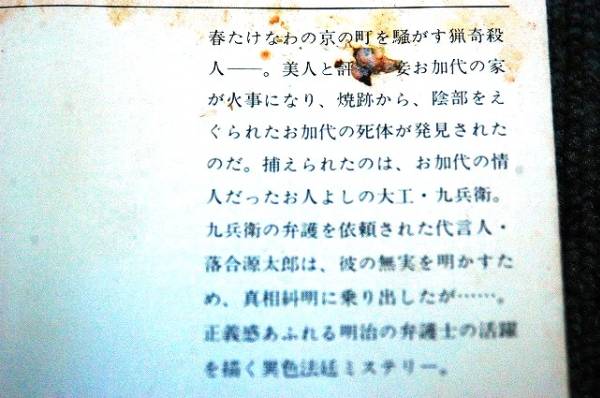 春たけなわの京の町を騒がす猟奇殺
人――。美人と評 妾お加代の家
が火事になり、焼跡から、陰部をえ
ぐられたお加代の死体が発見された
のだ。捕えられたのは、お加代の情
人だったお人よしの大工・九兵衛。
九兵衛の弁護を依頼された代言人・
落合源太郎は、彼の無実を明かすた
め、真相糾明に乗り出したが……。
正義感あふれる明治の弁護士の活躍
を描く異色法廷ミステリー。